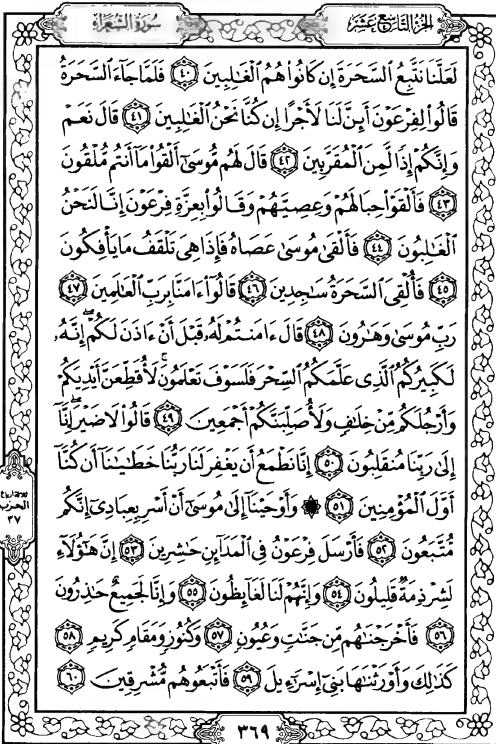 الجزء التاسع عشر
سورة الشعراء
لَعَلَّنَا نَتَّبِعُ السَّحَرَةَ إِن كَانُوا۟ هُمُ ٱلْغَٰلِبِينَ ٤٠ فَلَمَّا جَآءَ ٱلسَّحَرَةُ
قَالُوا۟ لِفِرْعَوْنَ أَئِنَّ لَنَا لَأَجْرًا إِن كُنَّا نَحْنُ ٱلْغَٰلِبِينَ ٤١ قَالَ نَعَمْ
وَإِنَّكُمْ إِذًا لَّمِنَ ٱلْمُقَرَّبِينَ ٤٢ قَالَ لَهُم مُّوسَىٰٓ أَلْقُوا۟ مَآ أَنتُم مُّلْقُونَ
٤٣ فَأَلْقَوْا۟ حِبَالَهُمْ وَعِصِيَّهُمْ وَقَالُوا۟ بِعِزَّةِ فِرْعَوْنَ إِنَّا لَنَحْنُ
ٱلْغَٰلِبُونَ ٤٤ فَأَلْقَىٰ مُوسَىٰ عَصَاهُ فَإِذَا هِىَ تَلْقَفُ مَا يَأْفِكُونَ
٤٥ فَأُلْقِىَ ٱلسَّحَرَةُ سَٰجِدِينَ ٤٦ قَالُوٓا۟ ءَامَنَّا بِرَبِّ ٱلْعَٰلَمِينَ ٤٧
رَبِّ مُوسَىٰ وَهَٰرُونَ ٤٨ قَالَ ءَامَنتُمْ لَهُۥ قَبْلَ أَنْ ءَاذَنَ لَكُمْ ۖ إِنَّهُۥ
لَكَبِيرُكُمُ ٱلَّذِى عَلَّمَكُمُ ٱلسِّحْرَ فَلَسَوْفَ تَعْلَمُونَ ۚ لَأُقَطِّعَنَّ أَيْدِيَكُمْ
وَأَرْجُلَكُم مِّنْ خِلَٰفٍ وَلَأُصَلِّبَنَّكُمْ أَجْمَعِينَ ٤٩ قَالُوا۟ لَا ضَيْرَ ۖ إِنَّآ
إِلَىٰ رَبِّنَا مُنقَلِبُونَ ٥٠ إِنَّا نَطْمَعُ أَن يَغْفِرَ لَنَا رَبُّنَا خَطَٰيَٰنَآ أَن كُنَّآ
أَوَّلَ ٱلْمُؤْمِنِينَ ٥١ ۞ وَأَوْحَيْنَآ إِلَىٰ مُوسَىٰٓ أَنْ أَسْرِ بِعِبَادِىٓ إِنَّكُم
مُّتَّبَعُونَ ٥٢ فَأَرْسَلَ فِرْعَوْنُ فِى ٱلْمَدَآئِنِ حَٰشِرِينَ ٥٣ إِنَّ هَٰٓؤُلَآءِ
لَشِرْذِمَةٌ قَلِيلُونَ ٥٤ وَإِنَّهُمْ لَنَا لَغَآئِظُونَ ٥٥ وَإِنَّا لَجَمِيعٌ حَٰذِرُونَ
٥٦ فَأَخْرَجْنَٰهُم مِّن جَنَّٰتٍ وَعُيُونٍ ٥٧ وَكُنُوزٍ وَمَقَامٍ كَرِيمٍ ٥٨
كَذَٰلِكَ وَأَوْرَثْنَٰهَا بَنِىٓ إِسْرَٰٓءِيلَ ٥٩ فَأَتْبَعُوهُم مُّشْرِقِينَ ٦٠
ثلاثة أرباع
الحزب
٣٧
٣٦٩